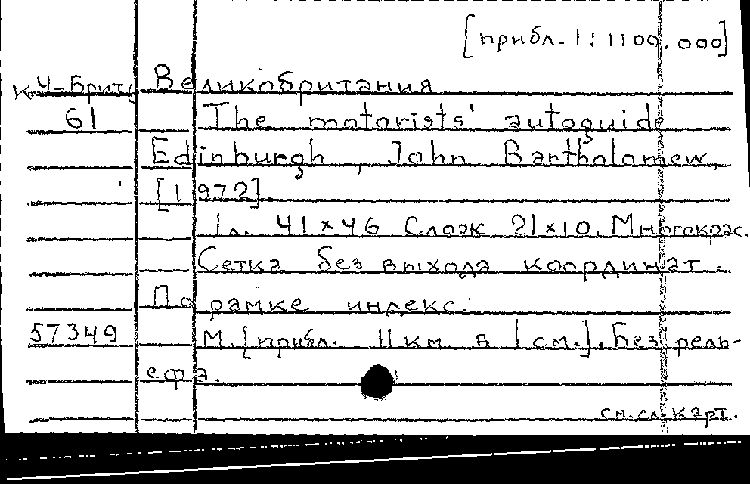 [прибл. 1:1100.000]
К У-Брит Великобритания
61 The motorists' autoguide
Edinburgh, John Bartholomew,
[1972].
1л. 41×46 Слож 21×10. Многокрас.
Сетка без выхода координат.
По рамке индекс.
57349 М.[прибл. 11км в 1см.]. Без рель-
ефа.
см.сл.карт.